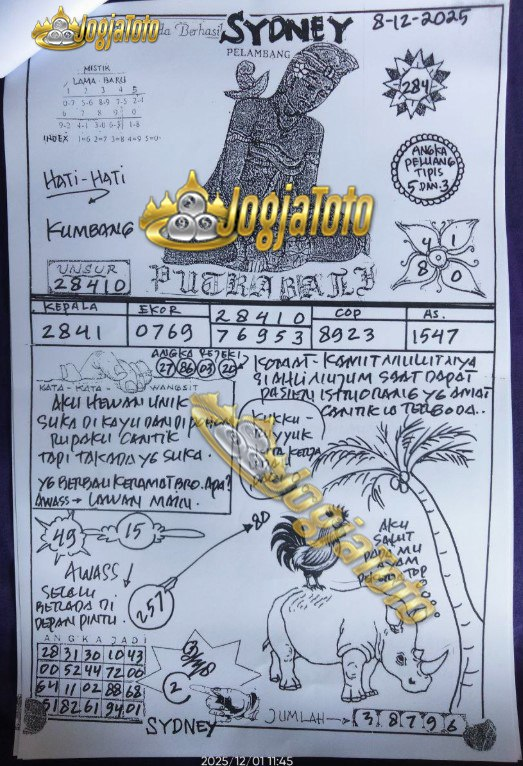 JogjaToto
da Berhasil
SYDNEY
8-12-2025
PELAMBANG
MISTIK
LAMA - BARU
1 2 3 4 5
0-7 5-6 8-9 7-5 2-1
6 7 8 9 0
INDEX 1=6 2=7 3=8 4=9 5=0
284
ANGKA
PELUANG
TIPIS
5 DAN 3
HATI-HATI
KUMBANG
JogjaToto
4 1
8 0
UNSUR
28410
PUTRA BALI
KEPALA
2841
EKOR
0769
28410
76953
COP
8923
AS.
1547
ANGKA REJEKI
27 86 03 20
KATA - KATA WANGSIT
AKU HEWAN UNIK
SUKA DI KAYU DAN DI
RUPAKU CANTIK
TAPI TAK ADA YG SUKA.
YG BERBAU KERAMAT BRO. APA?
AWASS → LAWAN MAIN.
KOMAT-KAMIT MULUTNYA
SI AHLI NUJUM SAAT DAPAT
PASIEN ISTRI ORANG YG AMAT
CANTIK LA TERGODA..
KUKKU
JogjaToto
AKU
SALUT
PADA MU
AYAM
TOP
49
15
80
257
AWASS
SELALU
BERADA DI
DEPAN PINTU.
ANGKA JADI
28 31 30 10 43
00 52 44 72 00
64 11 02 88 68
51 82 61 94 01
2
SYDNEY
JUMLAH → 3 8 7 9 6
2025/12/01 11:45